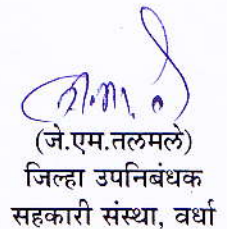 (जे.एम.तलमले)
जिल्हा उपनिबंधक
सहकारी संस्था, वर्धा